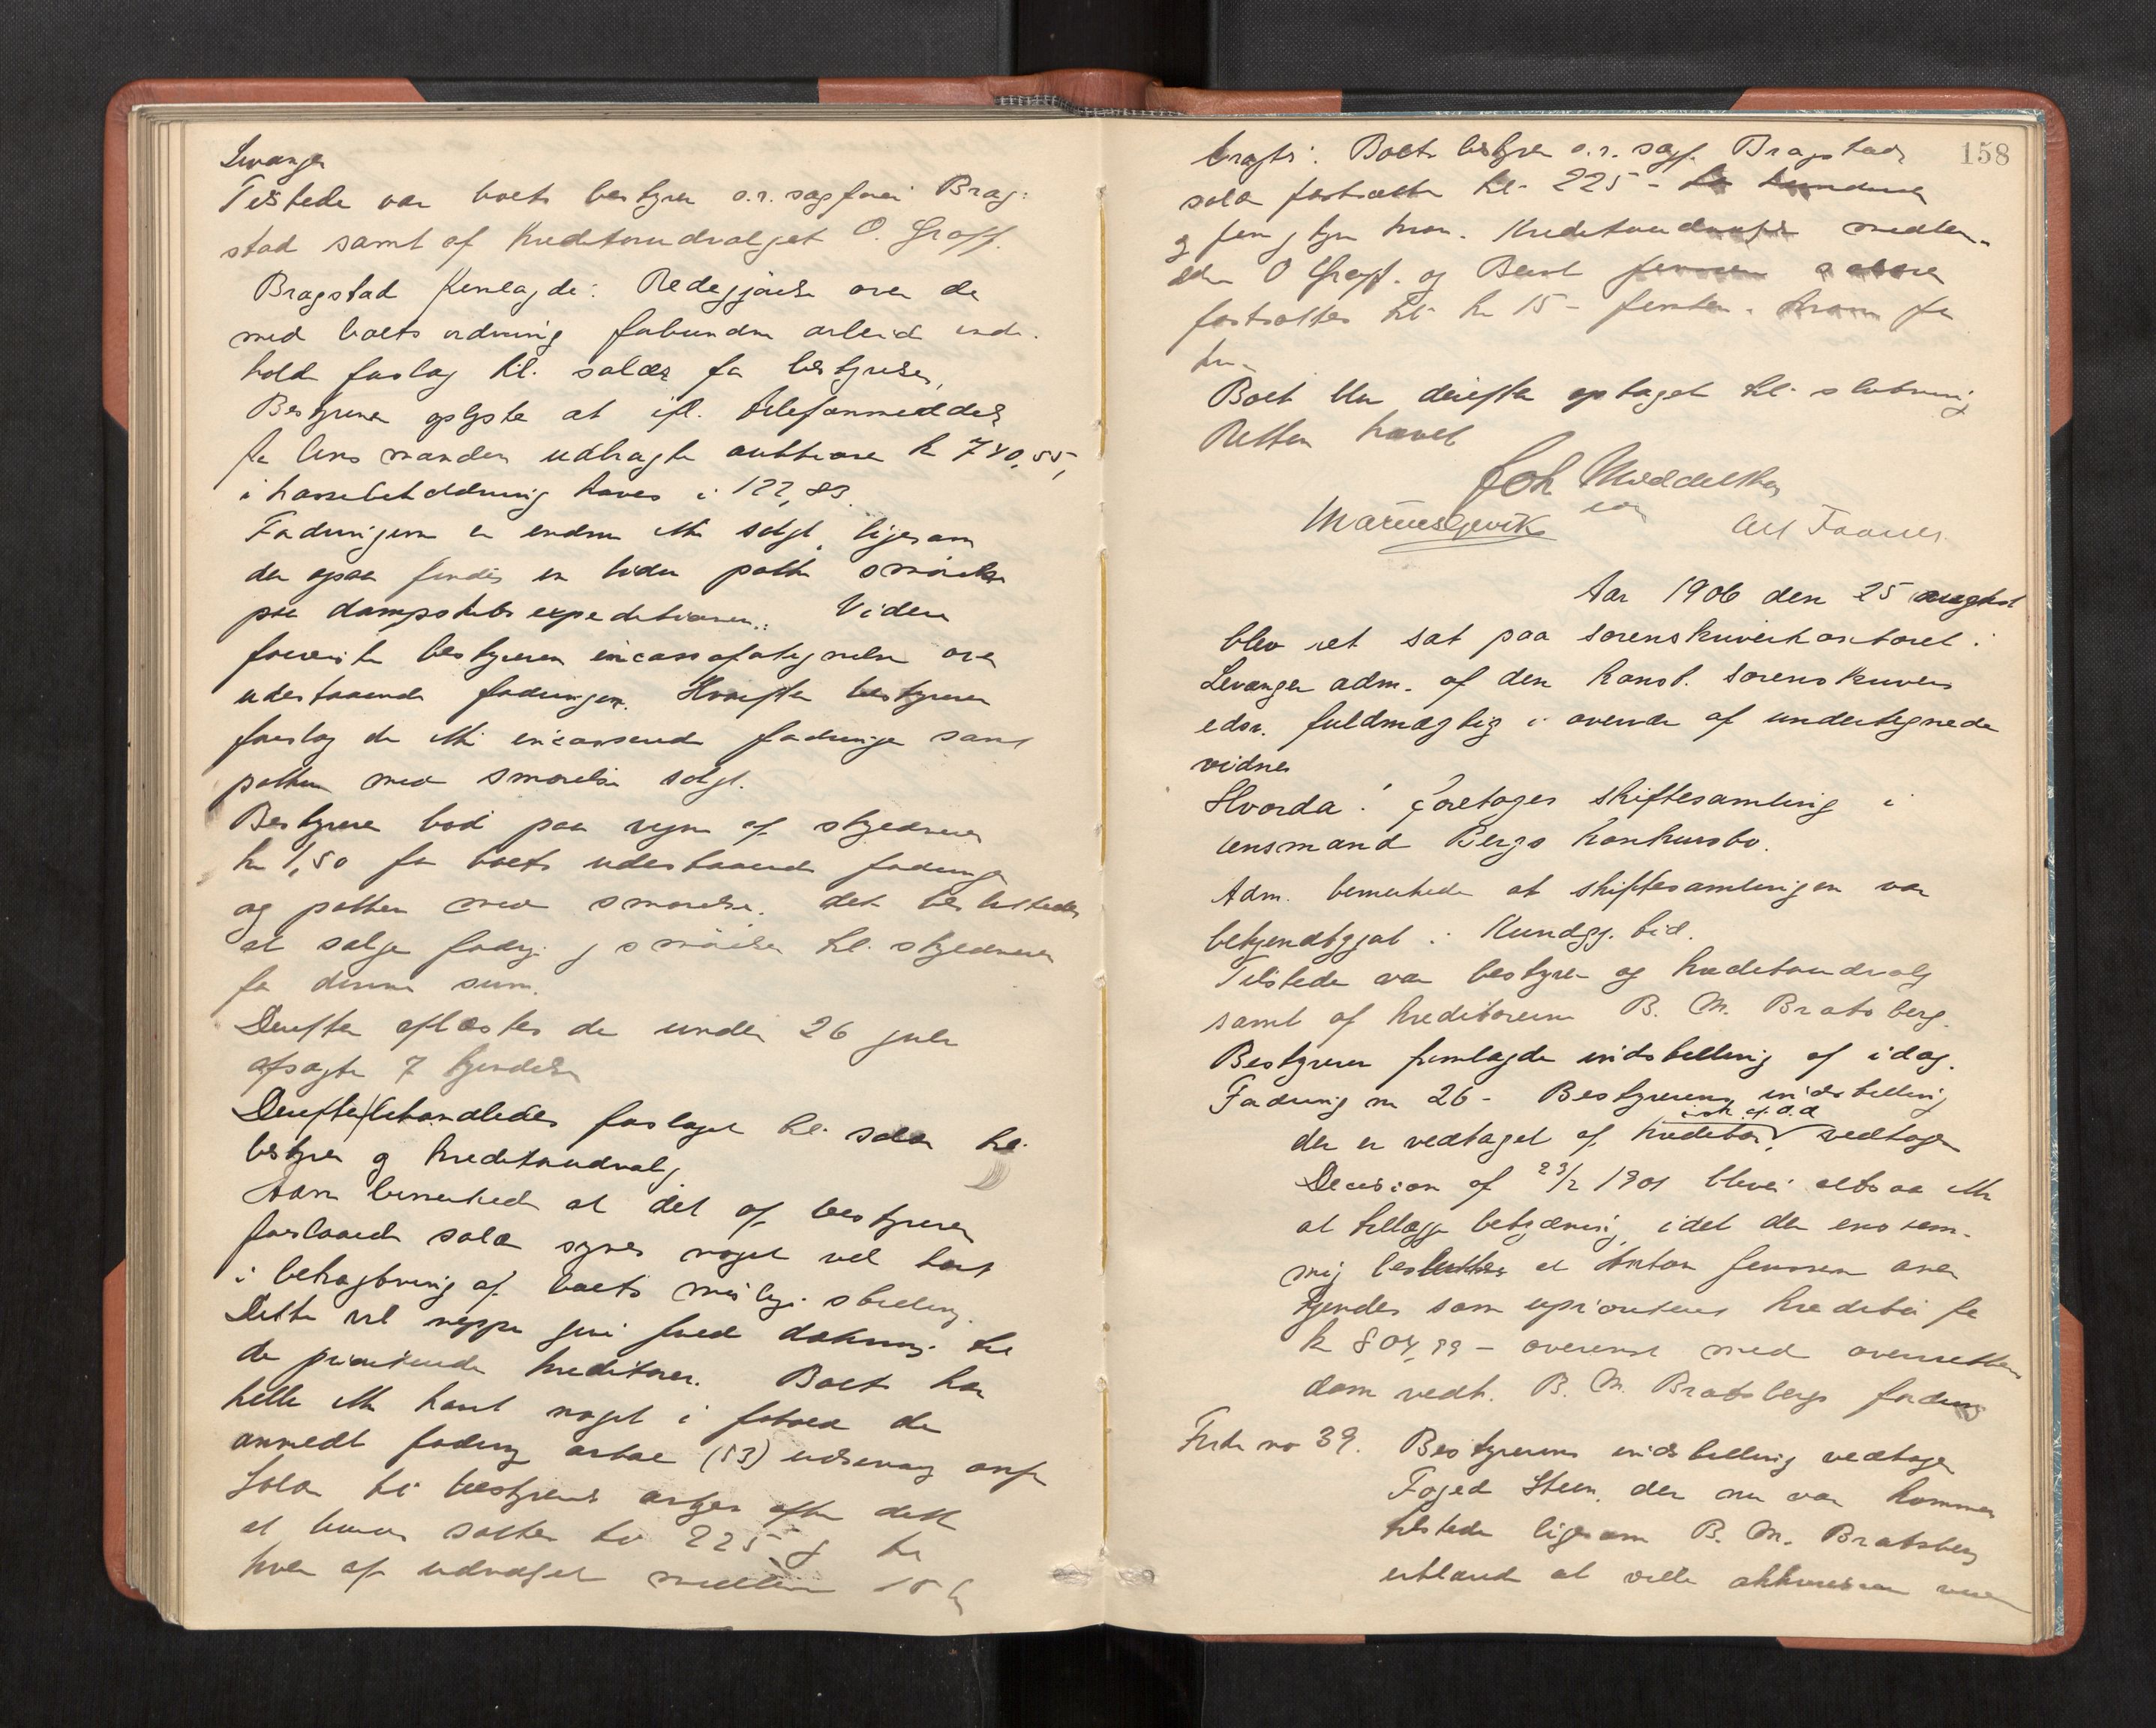 Levanger
Tilstede var boets bestyrer o.r. sagfører Brag-
stad samt af Kreditorudvalget O. Graff.
Bragstad fremlagde: Redegjørelse over de
med boets ordning forbundne arbeid inde-
holdt forslag til salær for bestyrelsen,
Bestyreren oplyste at ifl. telefonmeddels
fra lensmanden udbragte auktionen kr 740,55,
i kassebeholdning haves i 122,83.
Fordringerne er endnu ikke solgt, ligesom
der ogsaa findes en liden potte smørelse
paa dampskibsexpeditionen. Videre
foreviste bestyreren incassofortegnelse over
udestaaende fordringer. Hvorefter bestyreren
foreslog de ikke incasserede fordringer samt
potten med smørelse solgt.
Bestyreren bød paa vegne af skyldneren
kr 1,50 for boets udestaaende fordringer
og potten med smørelse. Det besluttedes
at sælge fordrg. og smørelsen til skyldneren
for denne sum.
Derefter oplæstes de under 26 juli
afsagte 7 kjendelser
Derefter behandledes forslaget til salær til
bestyrer og kreditorudvalg
Adm bemerkede at det af bestyreren
foreslaaede salær synes noget vel høit
i betragtning af boets mislige stilling.
Dette vil neppe give fuld dækning til
de prioriterede kreditorer. Boet har
heller ikke havt noget i forhold de
anmeldte fordring
Salær til bestyrelse
at kunne sættes til 225 og til
hver af udvalget medlem 15 kr
158
bragte: Boets bestyrer o.r. sagf. Bragstads
salær fastsattes til 225 - to hundrede
og fem og tyve kron. Kreditorudvalgs medlem-
mer O Graff. og Bernt Jenssen salære
fastsattes til kr 15 - femten - kron for
hver
Boet blev derefter optaget til slutning
Retten hævet
Joh Middelthon
Marius Gjevik
Carl Faaner
Aar 1906 den 25 august
blev ret sat paa sorenskriverkontoret i
Levanger adm. af den konst. sorenskrivers
edsv. fuldmægtig i overvær af undertegnede
vidner
Hvorda: Foretoges skiftesamling i
lensmand Bergs konkursbo.
Adm. bemerkede at skiftesamlingen var
bekjendtgjort i Kundgj. tid.
Tilstede var bestyrer og kreditorudvalg
samt af kreditorerne B. M. Bratsberg.
Bestyreren fremlagde indstilling af idag.
Fordring nr 26 - Bestyrerens indstilling
der er vedtaget af kreditor vedtoges
Decision af 23/2 1901 blever altsaa ikke
at tillægge betydning, idet der enstem-
mig besluttes at Anton Jenssen aner
kjendes som uprioriteret kreditor for
kr 804,99 - overenst med overrettens
dom vedk. B. M. Bratsbergs fordring
Fordr no 39. Bestyrerens indstilling vedtoges
Foged Steen, der nu var kommen
tilstede ligesom B. M. Bratsberg
erklærede at ville